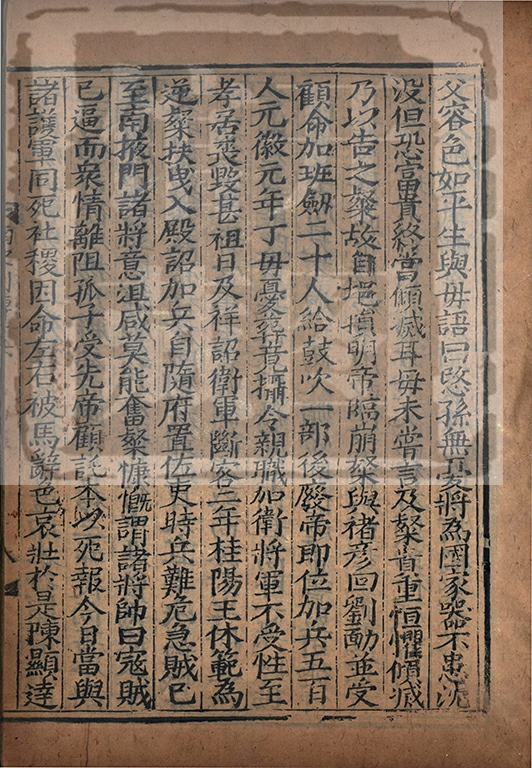 父容色如平生與母語曰愍孫無憂將為國家器不患沈
没但恐富貴終當傾滅耳母未嘗言及粲貴重恒懼傾滅
乃以告之粲故自挹損明帝臨崩粲與褚彦回劉勔並受
顧命加班劒二十人給鼓吹一部後廢帝即位加兵五百
人元徽元年丁母憂葬竟攝令親職加衛將軍不受性至
孝居喪毁甚祖日及祥詔衛軍斷客二年桂陽王休範為
逆粲扶曳入殿詔加兵自隨府置佐吏時兵難危急賊已
至南掖門諸將意沮咸莫能奮粲慷慨謂諸將帥曰寇賊
已逼而衆情離阻孤子受先帝顧託本以死報今日當與
諸護軍同死社稷因命左右被馬辭色哀壯於是陳顯達